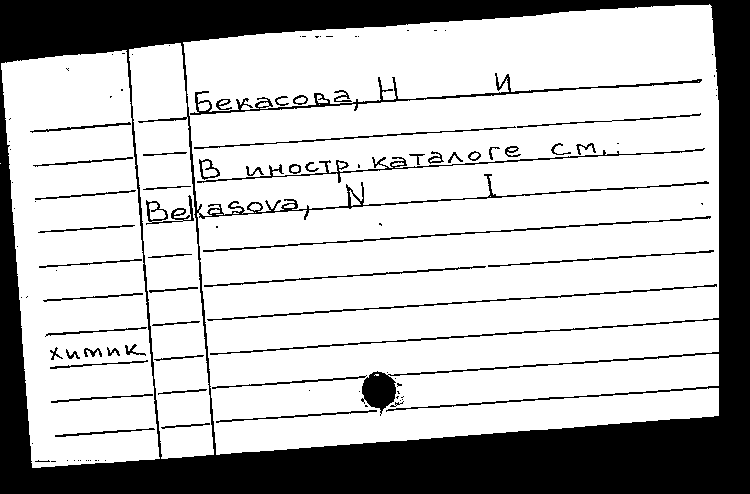 Бекасова, Н И
В иностр. каталоге см.:
Bekasova, N I
химик